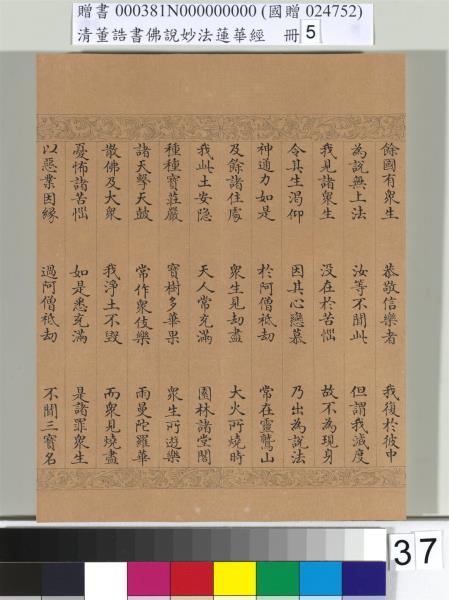 贈書 000381N000000000 (國贈 024752)
清董誥書佛說妙法蓮華經 冊 5
餘國有衆生 恭敬信樂者 我復於彼中
為說無上法 汝等不聞此 但謂我滅度
我見諸衆生 没在於苦惱 故不為現身
令其生渴仰 因其心戀慕 乃出為說法
神通力如是 於阿僧祇劫 常在靈鷲山
及餘諸住處 衆生見劫盡 大火所燒時
我此土安隐 天人常充滿 園林諸堂閣
種種寶莊嚴 寳樹多華果 衆生所遊樂
諸天擊天鼓 常作衆伎樂 雨曼陀羅華
散佛及大衆 我淨土不毀 而衆見燒盡
憂怖諸苦惱 如是悉充滿 是諸罪衆生
以惡業因緣 過阿僧祇劫 不聞三寳名
37